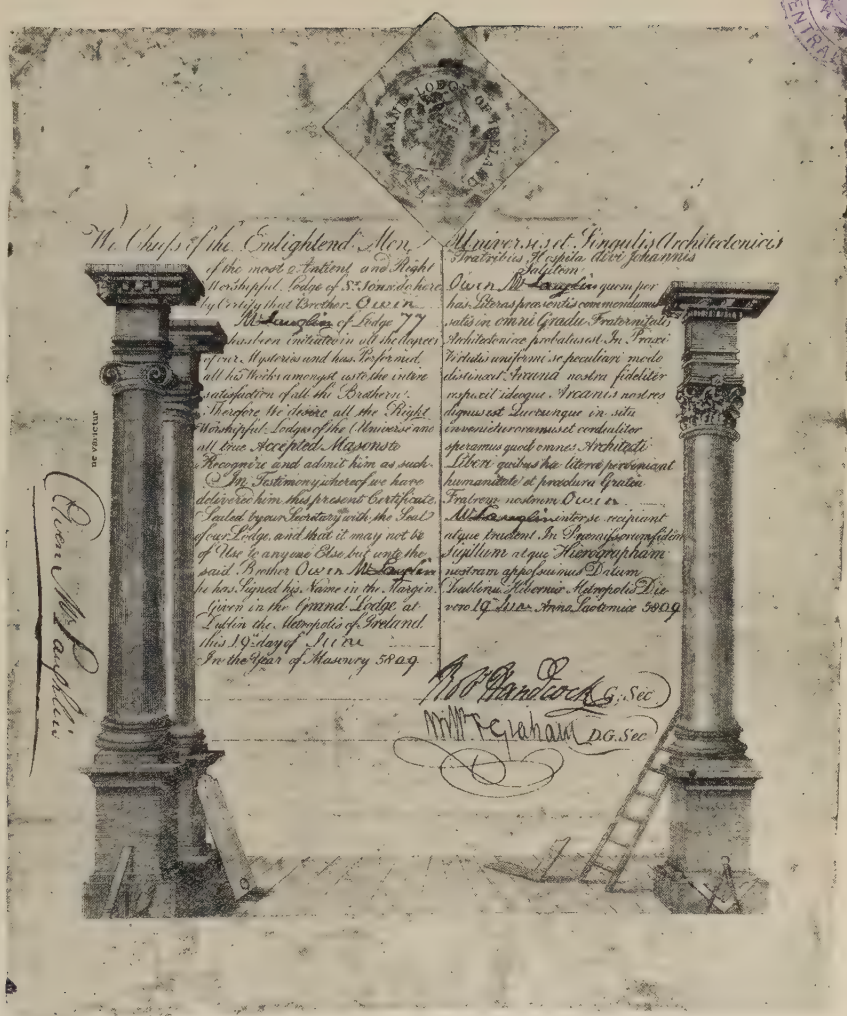 GRAND LODGE OF IRELAND
CENTRAL
We Chiefs of the Enlightend Men
of the most Antient and Right
Worshipful Lodge of St. Jons do here
by Certify that Brother Owen
McLauglin of Lodge 77
has been initiated in all the degrees
of our Mysteries and has Performed
all his Works amongst us to the intire
satisfaction of all the Brothern.
Therefore We desire all the Right
Worshipful Lodges of the Universe and
all true Accepted Masons to
Recognize and admit him as such.
In Testimony whereof we have
delivered him this present Certificate
Sealed by our Secretary with the Seal
of our Lodge, and that it may not be
of Use to anyone Else but unto the
said Brother Owen McLauglin
he has Signed his Name in the Margin
Given in the Grand Lodge, at
Dublin the Metropolis of Ireland
this 19th day of June
In the Year of Masonry 5809
Universis et Singulis Architectonicis
Fratribus Hospita divi Johannis
Salutem
Owen McLauglin quem por
has Literas præsentis commendamus
satis in omni Gradu Fraternitatis
Architectonicæ probatus est In Praxi
Virtutis uniformi se peculiari modo
distinxit Arcana nostra fideliter
respexit ideoque Arcanis nostres
dignus est Quicunque in situ
invenitur oramus et cordialiter
speramus quod omnes Architecti
Liberi quibus hæ literæ perveniant
humanitate et præclura Gratia
Fratrem nostrum Owen
McLauglin inter se recipiant
atque tradent In Præmissorum fidem
Sigillum atque Hierographam
nostram apposuimus Datum
Dublinii Hiberniæ Metropolis Die
vero 19th June Anno Laotomiæ 5809
Robt Handcock G. Sec
Wm F Graham D.G. Sec
ne varietur
Owen McLaughlin